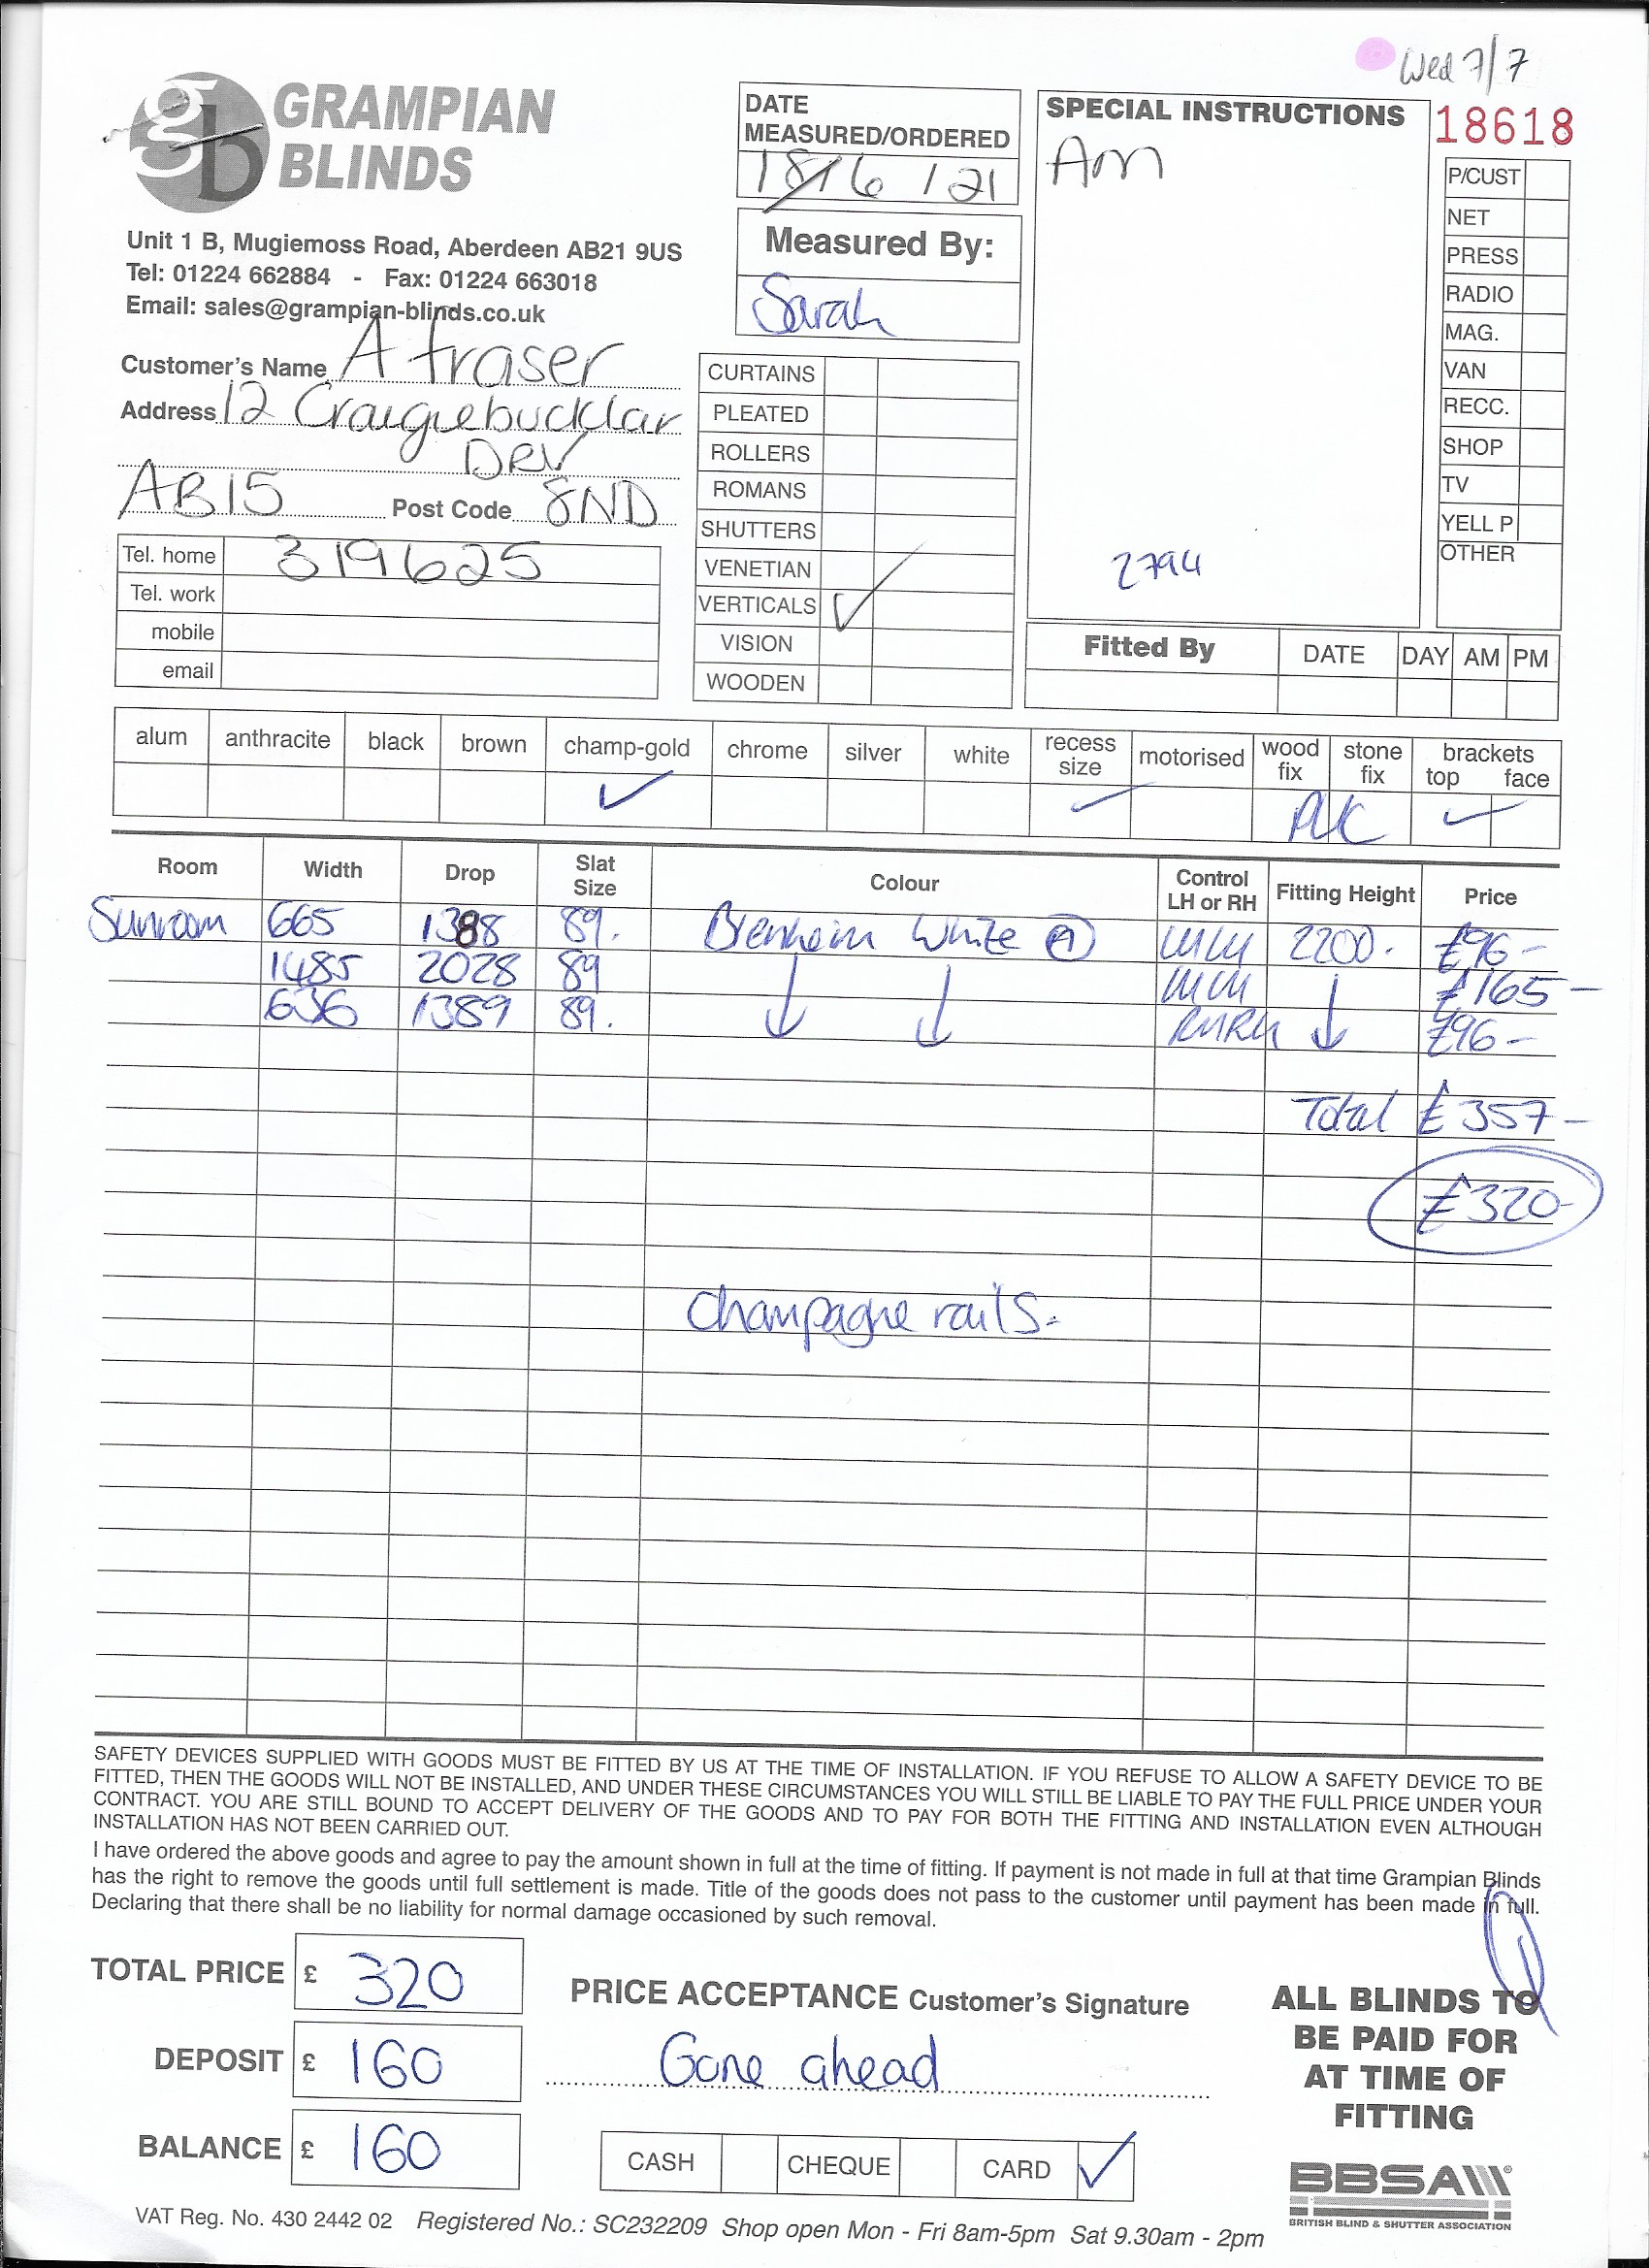 Wed 7/7
GRAMPIAN
BLINDS
Unit 1 B, Mugiemoss Road, Aberdeen AB21 9US
Tel: 01224 662884 - Fax: 01224 663018
Email: sales@grampian-blinds.co.uk
DATE
MEASURED/ORDERED
18/6/21
Measured By:
Sarah
SPECIAL INSTRUCTIONS
Am
2794
18618
P/CUST
NET
PRESS
RADIO
MAG.
VAN
RECC.
SHOP
TV
YELL P
OTHER
Customer's Name A Fraser
Address 12 Craigiebucklar
Drv
AB15 Post Code 8ND
Tel. home 319625
Tel. work
mobile
email
CURTAINS
PLEATED
ROLLERS
ROMANS
SHUTTERS
VENETIAN
VERTICALS ✓
VISION
WOODEN
Fitted By DATE DAY AM PM
alum anthracite black brown champ-gold chrome silver white recess size motorised wood fix stone fix brackets top face
✓ ✓ ✓
Room Width Drop Slat Size Colour Control LH or RH Fitting Height Price
Sunroom 665 1388 89. Blenheim White A 2200. £96-
1485 2028 89 £165-
636 1389 89. RHRH £96-
Total £357-
£320-
Champagne rails.
SAFETY DEVICES SUPPLIED WITH GOODS MUST BE FITTED BY US AT THE TIME OF INSTALLATION. IF YOU REFUSE TO ALLOW A SAFETY DEVICE TO BE
FITTED, THEN THE GOODS WILL NOT BE INSTALLED, AND UNDER THESE CIRCUMSTANCES YOU WILL STILL BE LIABLE TO PAY THE FULL PRICE UNDER YOUR
CONTRACT. YOU ARE STILL BOUND TO ACCEPT DELIVERY OF THE GOODS AND TO PAY FOR BOTH THE FITTING AND INSTALLATION EVEN ALTHOUGH
INSTALLATION HAS NOT BEEN CARRIED OUT.
I have ordered the above goods and agree to pay the amount shown in full at the time of fitting. If payment is not made in full at that time Grampian Blinds
has the right to remove the goods until full settlement is made. Title of the goods does not pass to the customer until payment has been made in full.
Declaring that there shall be no liability for normal damage occasioned by such removal.
TOTAL PRICE £ 320
DEPOSIT £ 160
BALANCE £ 160
PRICE ACCEPTANCE Customer's Signature
Gone ahead
CASH CHEQUE CARD ✓
ALL BLINDS TO
BE PAID FOR
AT TIME OF
FITTING
BBSA
BRITISH BLIND & SHUTTER ASSOCIATION
VAT Reg. No. 430 2442 02 Registered No.: SC232209 Shop open Mon - Fri 8am-5pm Sat 9.30am - 2pm